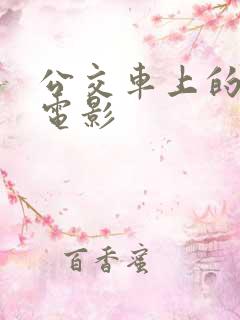 公交車上的
電影
百香蜜